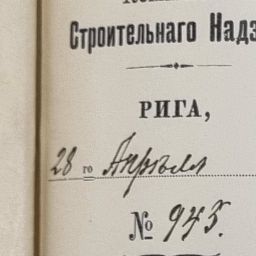 Строительнаго Надз
РИГА,
28 го Апрѣля
№ 945.